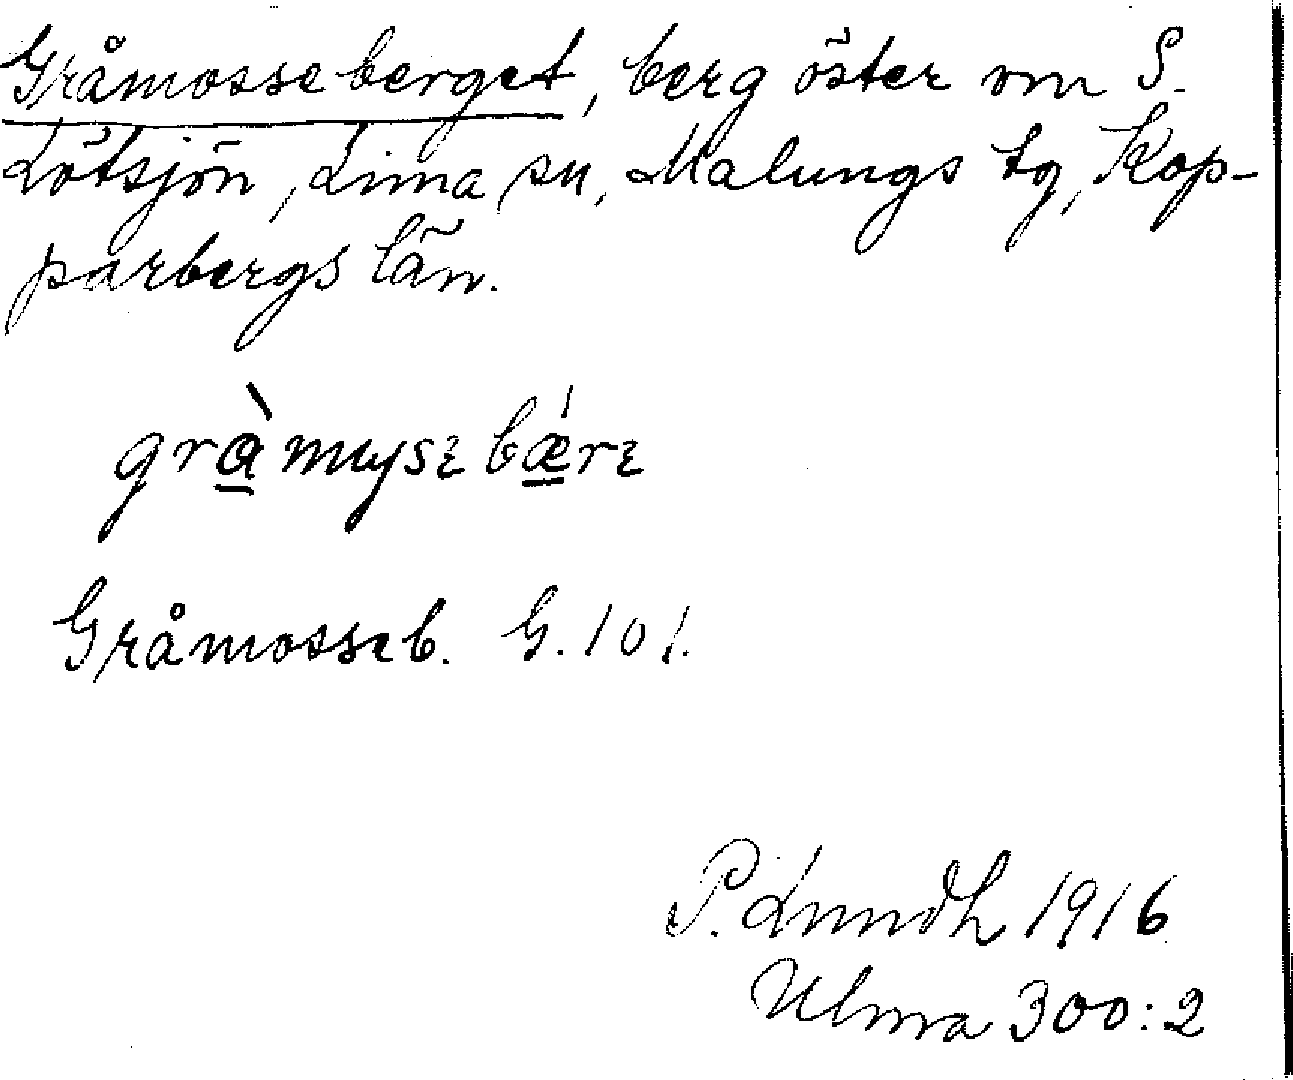 Gråmosseberget, berg öster om S.
Lötsjön, Lima sn, Malungs tg, Kop-
parbergs län.
gràmysebǽre
Gråmosseb. G. 101.
P. Lundh 1916
Ulma 300:2